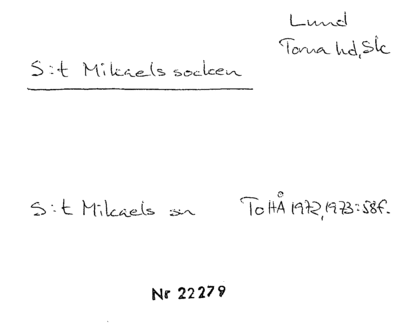 Lund
Torna hd, Sk
S:t Mikaels socken
S:t Mikaels sn ToHÅ 1972, 1973:58f.
Nr 22279